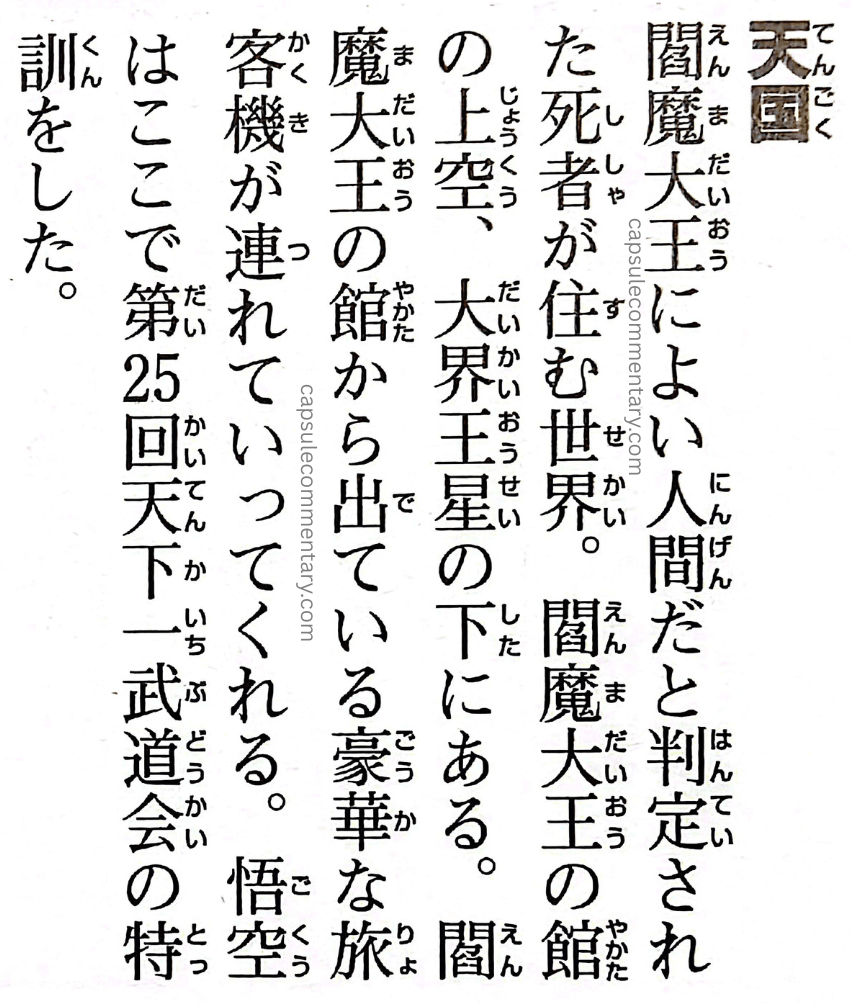 天国
閻魔大王によい人間だと判定され
た死者が住む世界。閻魔大王の館
の上空、大界王星の下にある。閻
魔大王の館から出ている豪華な旅
客機が連れていってくれる。悟空
はここで第25回天下一武道会の特
訓をした。
capsulecommentary.com
capsulecommentary.com